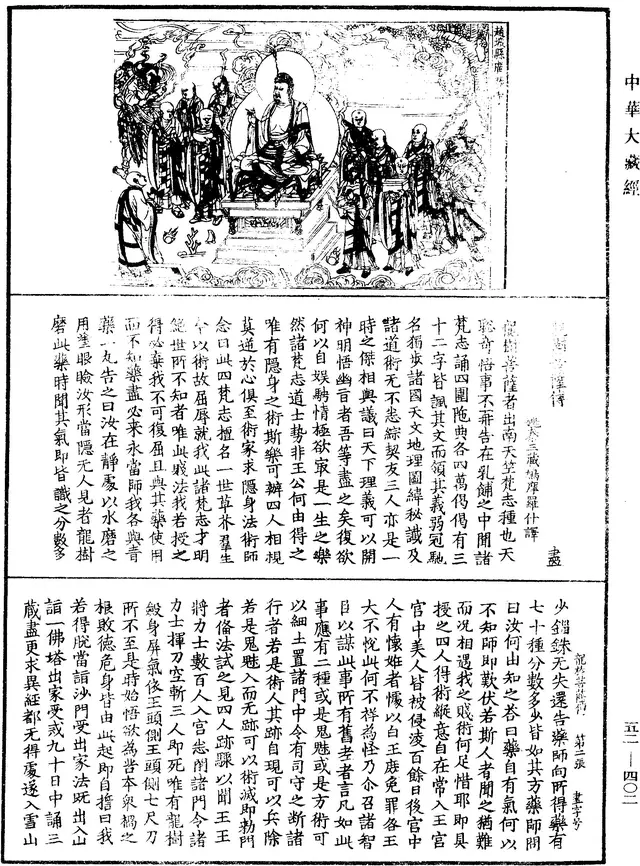 中華大藏經
趙城縣廣
龍樹菩薩傳
姚秦三藏鳩摩羅什譯 盡
龍樹菩薩者出南天竺梵志種也天
聦奇悟事不再告在乳餔之中聞諸
梵志誦四圍陁典各四萬偈偈有三
十二字皆諷其文而領其義弱冠馳
名獨步諸國天文地理圖緯秘讖及
諸道術无不悉綜契友三人亦是一
時之傑相與議曰天下理義可以開
神明悟幽旨者吾等盡之矣復欲
何以自娱騁情極欲㝡是一生之樂
然諸梵志道士勢非王公何由得之
唯有隱身之術斯樂可辦四人相視
莫逆於心俱至術家求隱身法術師
念曰此四梵志擅名一世草芥羣生
今以術故屈辱就我此諸梵志才明
絶世所不知者唯此賤法我若授之
得必棄我不可復屈且與其藥使用
而不知藥盡必來永當師我各與青
藥一丸告之曰汝在靜處以水磨之
用塗眼瞼汝形當隱无人見者龍樹
磨此藥時聞其氣即皆識之分數多
龍樹菩薩傳 第二張 盡字号
少錙銖无失還告藥師向所得藥有
七十種分數多少皆如其方藥師問
曰汝何由知之荅曰藥自有氣何以
不知師即歎伏若斯人者聞之猶難
而況相遇我之賤術何足惜耶即具
授之四人得術縱意自在常入王宮
宮中美人皆被侵淩百餘日後宮中
人有懷妊者懅以白王庶免罪咎王
大不悅此何不祥為怪乃尒召諸智
臣以謀此事所有舊老者言凡如此
事應有二種或是鬼魅或是方術可
以細土置諸門中令有司守之斷諸
行者若是術人其跡自現可以兵除
若是鬼魅入而无跡可以術滅即勑門
者備法試之見四人跡驟以聞王王
將力士數百人入宮悉閇諸門令諸
力士揮刀空斬三人即死唯有龍樹
斂身屏氣依王頭側王頭側七尺刀
所不至是時始悟欲為苦本衆禍之
根敗德危身皆由此起即自擔曰我
若得脫當詣沙門受出家法旣出入山
詣一佛塔出家受戒九十日中誦三
藏盡更求異經都无得處遂入雪山
五二—四〇二